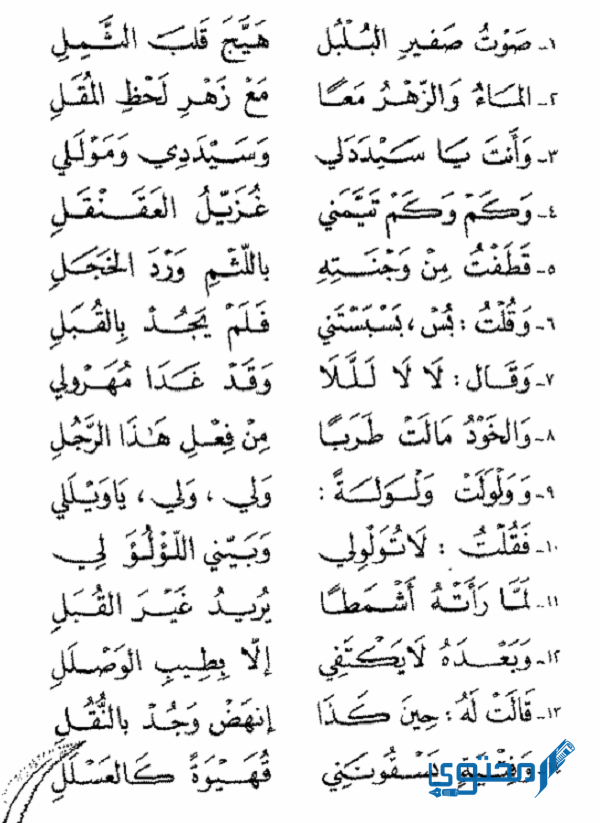 ١- صَوْتُ صَفيرِ البُلْبُلِ هَيَّجَ قَلبَ الثَّمِلِ
٢- المَاءُ وَالزَّهْرُ مَعًا مَعْ زَهْرِ لَحْظِ المُقَلِ
٣- وَأَنتَ يَا سَيِّدَدَلي وَسَيِّدَدِي وَمَوْلَلي
٤- وَكَمْ وَكَمْ تَيَّمَني غُزَيِّلُ العَقَنْقَلِ
٥- قَطَفْتُ مِنْ وَجْنَتِهِ باللَّثْمِ وَرْدَ الخَجَلِ
٦- وَقُلْتُ : بُسْ ، بَسْبَسْتَني فَلَمْ يَجُدْ بِالقُبَلِ
٧- وَقَال : لَا لَا لَلَلَا وَقَدْ غَدَا مُهَرْولي
٨- وَالخَوْدُ مَالَتْ طَرَبًا مِنْ فِعْلِ هَذَا الرَّجُلِ
٩- وَوَلْوَلَتْ وَلْوَلَةً : وَلي ، وَلي ، يَاوَيْلَلي
١٠- فَقُلْتُ : لَاتُوَلْوِلي وَبَيِّني اللُّؤْلُؤَ لِي
١١- لَمَّا رَأَتْهُ أَشْمَطًا يُريدُ غَيْرَ القُبَلِ
١٢- وَبَعْدَهُ لَايَكْتَفِي إلّا بِطِيبِ الوَصْلَلِ
١٣- قَالَتْ لَهُ : حِينَ كَذَا إنهَضْ وَجُدْ بالنُّقَلِ
وَفِتْيَةٍ يَسْقُونَني قُهَيْوَةً كَالعَسْلَلِ
محتوى